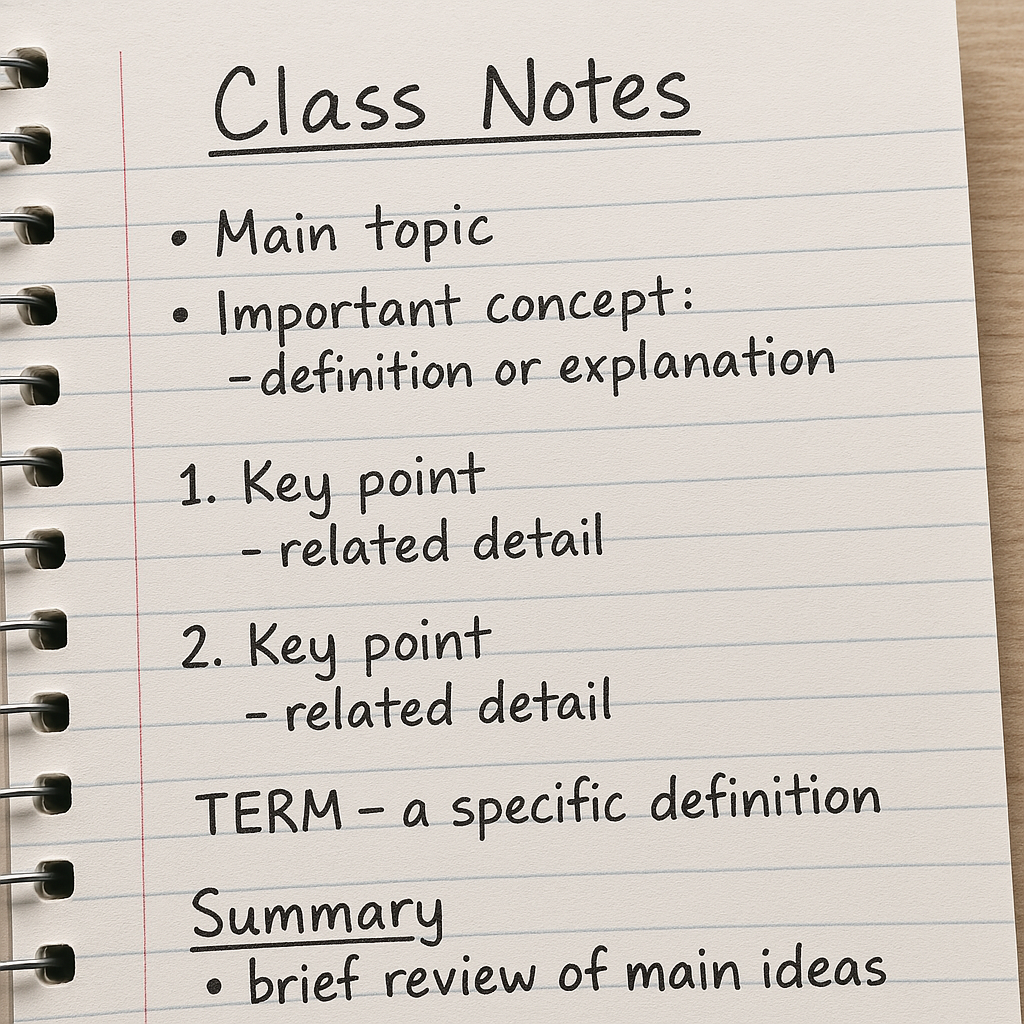 Class Notes
• Main topic
• Important concept:
-definition or explanation
1. Key point
- related detail
2. Key point
- related detail
TERM - a specific definition
Summary
• brief review of main ideas